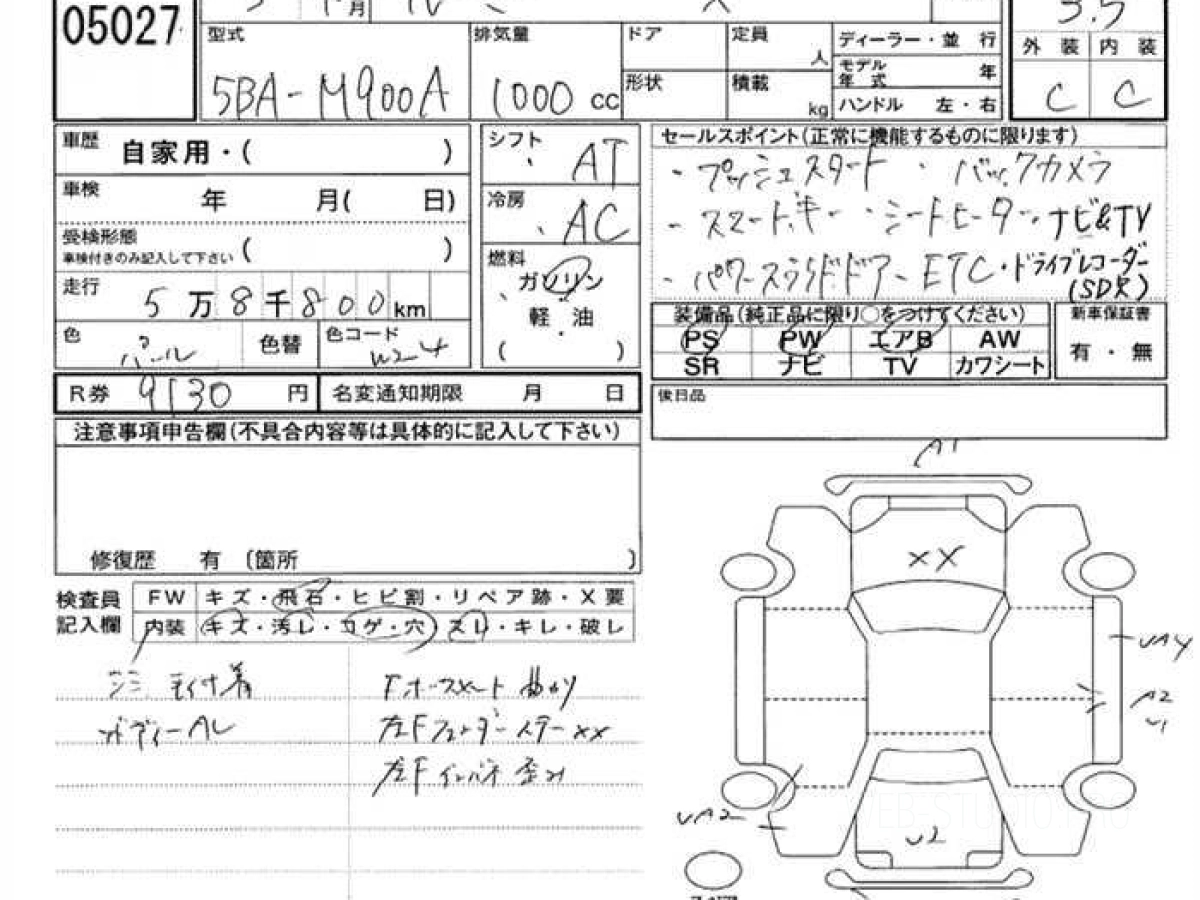 05027
月
3.5
型式
排気量
ドア
定員
人
ディーラー・並 行
外 装
内 装
5BA-M900A
1000 cc
形状
積載
kg
モデル年式
年
ハンドル 左・右
C
C
車歴
自家用・( )
シフト
AT
セールスポイント(正常に機能するものに限ります)
・プッシュスタート ・バックカメラ
車検
年 月( 日)
冷房
AC
・スマートキー ・シートヒーター ・ナビ&TV
受検形態
車検付きのみ記入して下さい
( )
燃料
ガソリン
軽・油
( )
・パワースライドドア ・ETC ・ドライブレコーダー
(SD欠)
走行
5万8千800km
装備品(純正品に限り○をつけてください)
PS PW エアB AW
SR ナビ TV カワシート
新車保証書
有・無
色
パール
色替
色コード
W24
R券 9130 円
名変通知期限 月 日
後日品
注意事項申告欄(不具合内容等は具体的に記入して下さい)
修復歴 有 (箇所 )
検査員記入欄
FW キズ・飛石・ヒビ割・リペア跡・X要
内装 キズ・汚レ・コゲ・穴 スレ・キレ・破レ
ボディーAL
Fホースメント曲がり
左Fフェンダーステー××
左Fインパネ歪み
A1
XX
UA4
A2
U1
UA2
U2